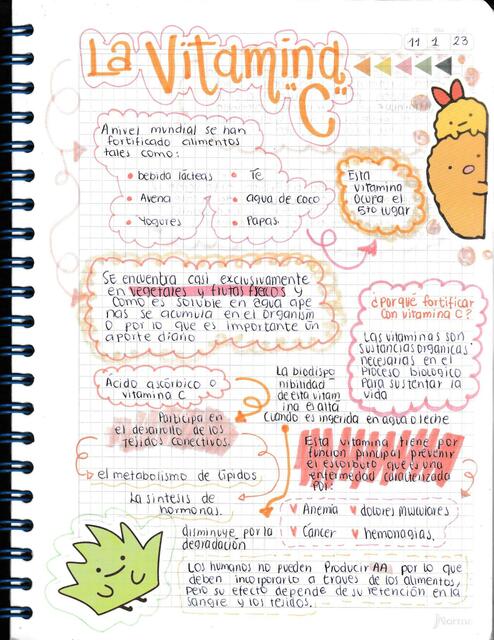 La Vitamina
"C"
11 1 23
A nivel mundial se han
fortificado alimentos
tales como:
• bebida lácteas
• Avena
• Yogures
• Té
• agua de coco
• Papas
Esta
vitamina
ocupa el
5to lugar
SE encuentra casi exclusivamente
en vegetales y frutas frescos y
como es soluble en agua ape
nas se acumula en el organism
o por lo que es importante un
aporte diario
¿Por qué fortificar
con vitamina C?
Las vitaminas son
sustancias organicas
necesarias en el
Proceso biologico
Para sustentar la
vida
Acido ascórbico o
vitamina C
La biodispo
nibilidad
de esta vitam
ina es alta
cuando es ingerida en agua o leche
Participa en
el desarrollo de los
tejidos conectivos.
el metabolismo de lípidos
La sintesis de
hormonas.
disminuye por la
degradación
Esta vitamina tiene por
función principal prevenir
el escorbuto que es una
enfermedad caracterizada
por:
Anemia
dolores musculares
Cáncer
hemorragias.
Los humanos no pueden Producir AA por lo que
deben incorporarlo a través de los alimentos,
pero su efecto depende de su retención en la
sangre y los tejidos.
Norma